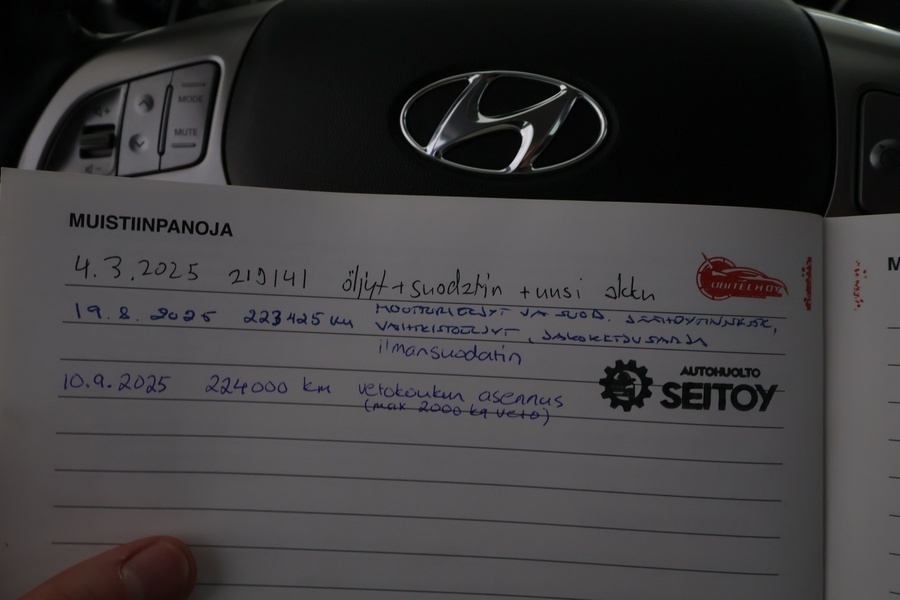 MODE
MUTE
MUISTIINPANOJA
M
4.3.2025 219141 öljyt + suodatin + uusi akku
OBITECH OY
19.8.2025 223425 km MOOTTORIÖLJYT JA SUOD. JÄÄHDYTINNESTE,
VAIHTEISTOÖLJYT, JAKOKETJUSARJA
ilmansuodatin
AUTOHUOLTO
SEITOY
10.9.2025 224000 km vetokoukun asennus
(max 2000 kg veto)